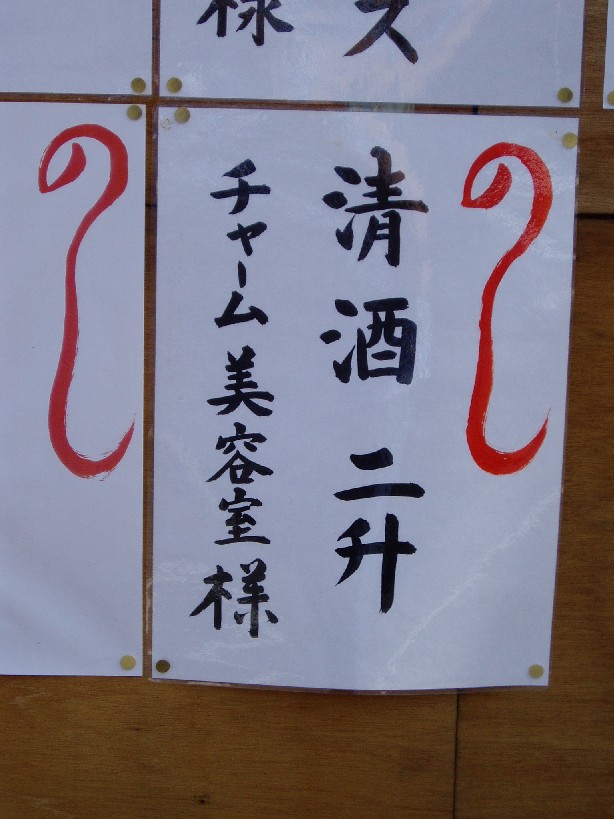 様
ス
のし
清酒 二升
チャーム美容室様
のし